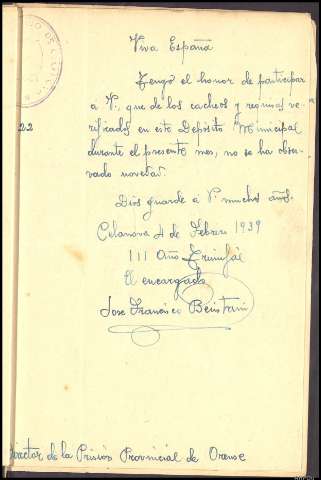 Viva España
Tengo el honor de participar
a V., que de los cacheos y requisas ve-
rificados en este Depósito Municipal
durante el presente mes, no se ha obser-
vado novedad.
22
Dios guarde a V. muchos años.
Celanova 4 de Febrero 1939
III Año Triunfal
El encargado
Jose Francisco
Director de la Prisión Provincial de Orense